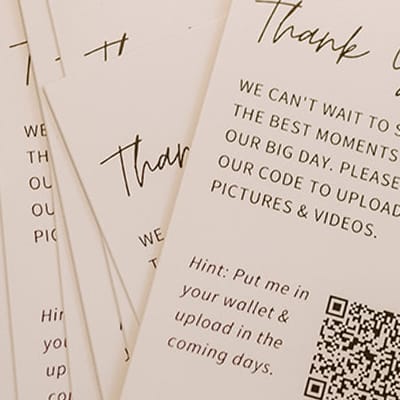 Thank
WE CAN'T WAIT TO
THE BEST MOMENTS
OUR BIG DAY. PLEASE
OUR CODE TO UPLOAD
PICTURES & VIDEOS.
Hint: Put me in
your wallet &
upload in the
coming days.
Than
WE
T
WE
TH
OU
OU
PIC
Hin
you
up
co